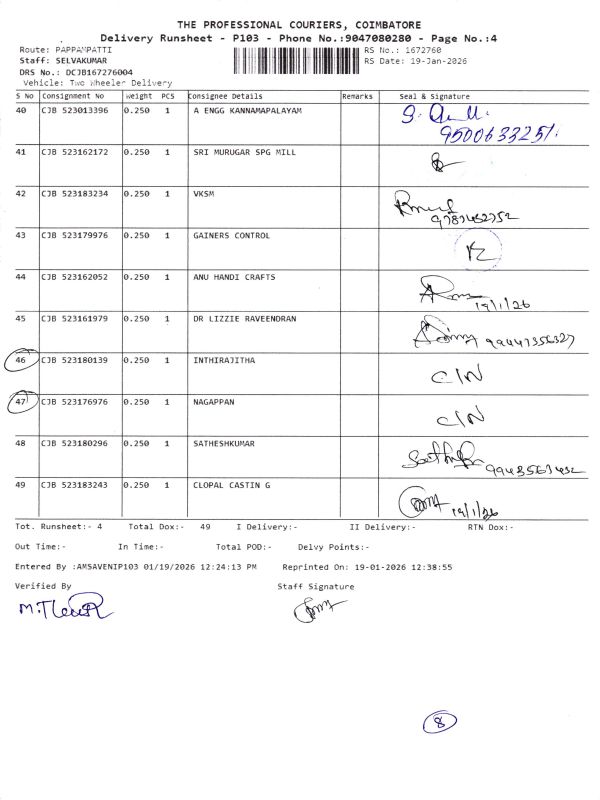 THE PROFESSIONAL COURIERS, COIMBATORE
Delivery Runsheet - P103 - Phone No.:9047080280 - Page No.:4
Route: PAPPAMPATTI
RS No.: 1672760
Staff: SELVAKUMAR
RS Date: 19-Jan-2026
DRS No.: DCJB167276004
Vehicle: Two Wheeler Delivery
S No Consignment No Weight PCS Consignee Details Remarks Seal & Signature
40 CJB 523013396 0.250 1 A ENGG KANNAMAPALAYAM
9500633251.
41 CJB 523162172 0.250 1 SRI MURUGAR SPG MILL
42 CJB 523183234 0.250 1 VKSM
9787452752
43 CJB 523179976 0.250 1 GAINERS CONTROL
44 CJB 523162052 0.250 1 ANU HANDI CRAFTS
19/1/26
45 CJB 523161979 0.250 1 DR LIZZIE RAVEENDRAN
99447355327
46 CJB 523180139 0.250 1 INTHIRAJITHA C/N
47 CJB 523176976 0.250 1 NAGAPPAN C/N
48 CJB 523180296 0.250 1 SATHESHKUMAR
9943563432
49 CJB 523183243 0.250 1 CLOPAL CASTIN G 19/1/26
Tot. Runsheet:- 4 Total Dox:- 49 I Delivery:- II Delivery:- RTN Dox:-
Out Time:- In Time:- Total POD:- Delvy Points:-
Entered By :AMSAVENIP103 01/19/2026 12:24:13 PM Reprinted On: 19-01-2026 12:38:55
Verified By Staff Signature
8